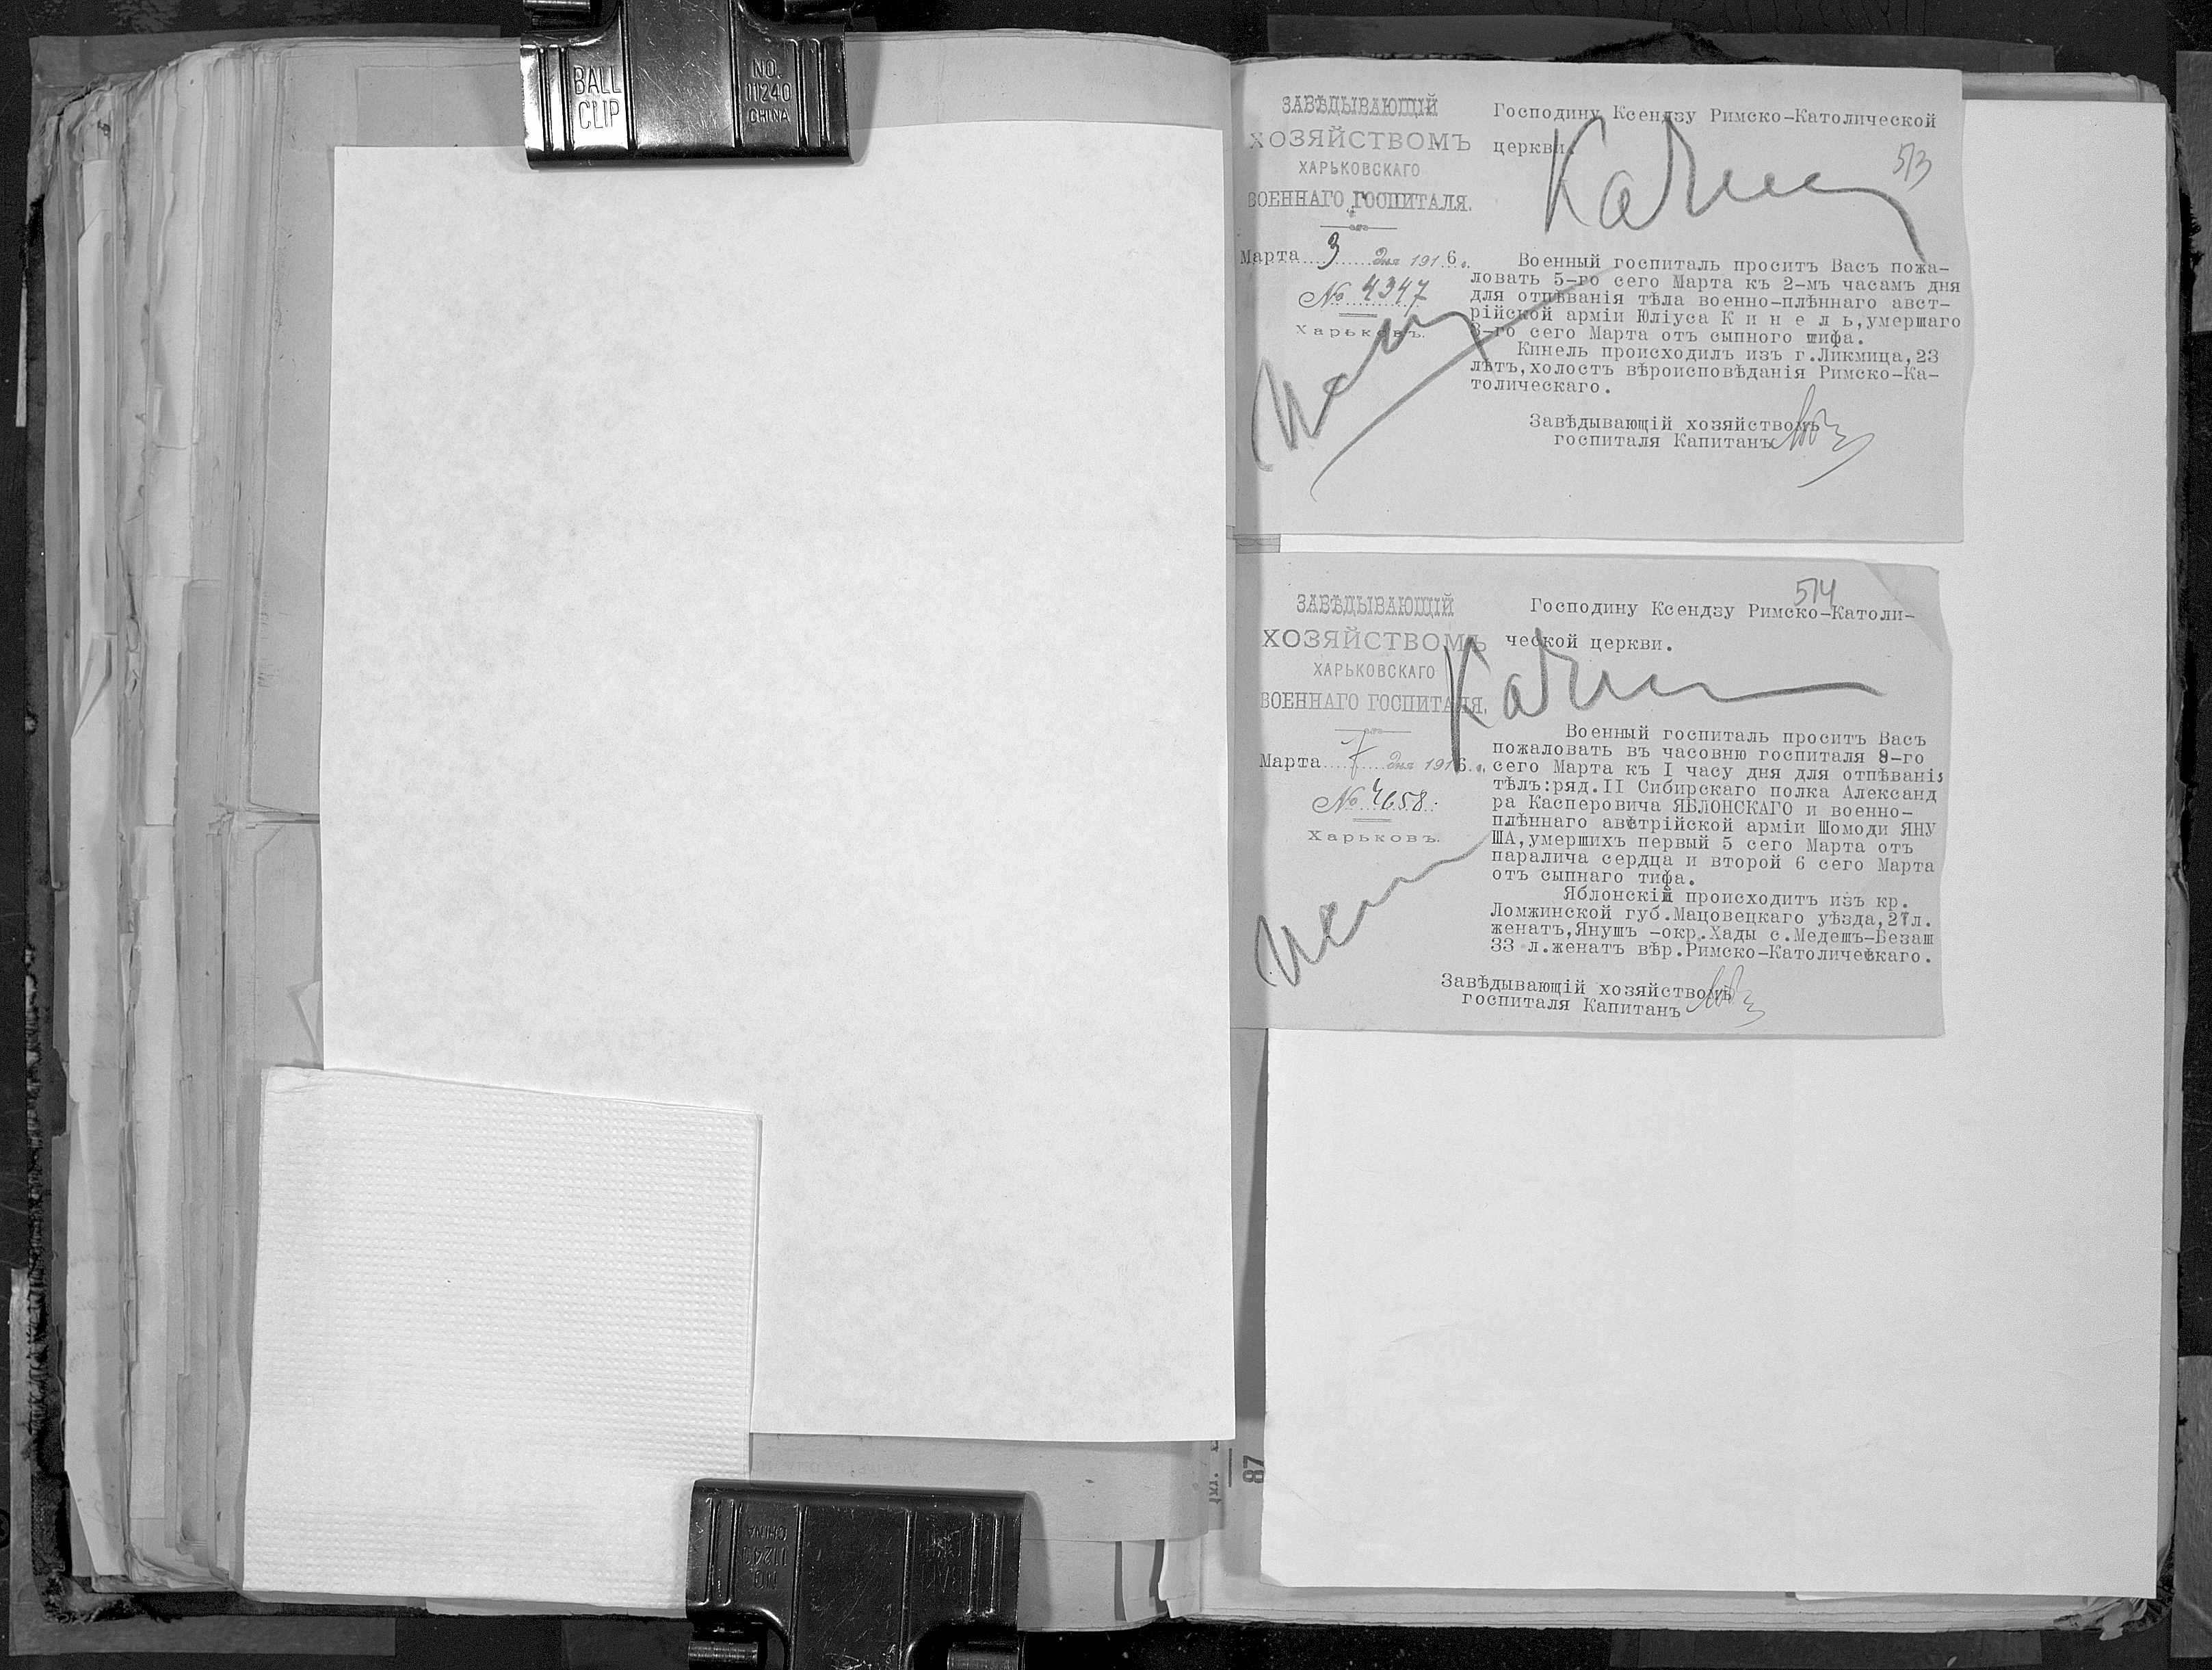 BALL
CLIP
NO.
11240
CHINA
ЗАВѢДЫВАЮЩІЙ
ХОЗЯЙСТВОМЪ
ХАРЬКОВСКАГО
ВОЕННАГО ГОСПИТАЛЯ.
Марта 3 дня 1916 г.
№ 4347
Харьковъ.
513
Господину Ксендзу Римско-Католической
церкви.
Военный госпиталь проситъ Васъ пожа-
ловать 5-го сего Марта къ 2-мъ часамъ дня
для отпѣванія тѣла военно-плѣннаго авст-
рійской арміи Юліуса К и н е л ь,умершаго
3-го сего Марта отъ сыпного тифа.
Кинель происходилъ изъ г.Ликмица,23
лѣтъ,холостъ вѣроисповѣданія Римско-Ка-
толическаго.
Завѣдывающій хозяйствомъ
госпиталя Капитанъ
ЗАВѢДЫВАЮЩІЙ
ХОЗЯЙСТВОМЪ
ХАРЬКОВСКАГО
ВОЕННАГО ГОСПИТАЛЯ.
Марта 7 дня 1916 г.
№ 4658.
Харьковъ.
514
Господину Ксендзу Римско-Католи-
ческой церкви.
Военный госпиталь проситъ Васъ
пожаловать въ часовню госпиталя 9-го
сего Марта къ I часу дня для отпѣванія
тѣлъ:ряд.II Сибирскаго полка Александ
ра Касперовича ЯБЛОНСКАГО и военно-
плѣннаго австрійской арміи Шомоди ЯНУ
ША,умершихъ первый 5 сего Марта отъ
паралича сердца и второй 6 сего Марта
отъ сыпнаго тифа.
Яблонскій происходитъ изъ кр.
Ломжинской губ.Мацовецкаго уѣзда,27л.
женатъ,Янушъ -окр.Хады с.Медешъ-Безаш
33 л.женатъ вѣр.Римско-Католическаго.
Завѣдывающій хозяйствомъ
госпиталя Капитанъ
87